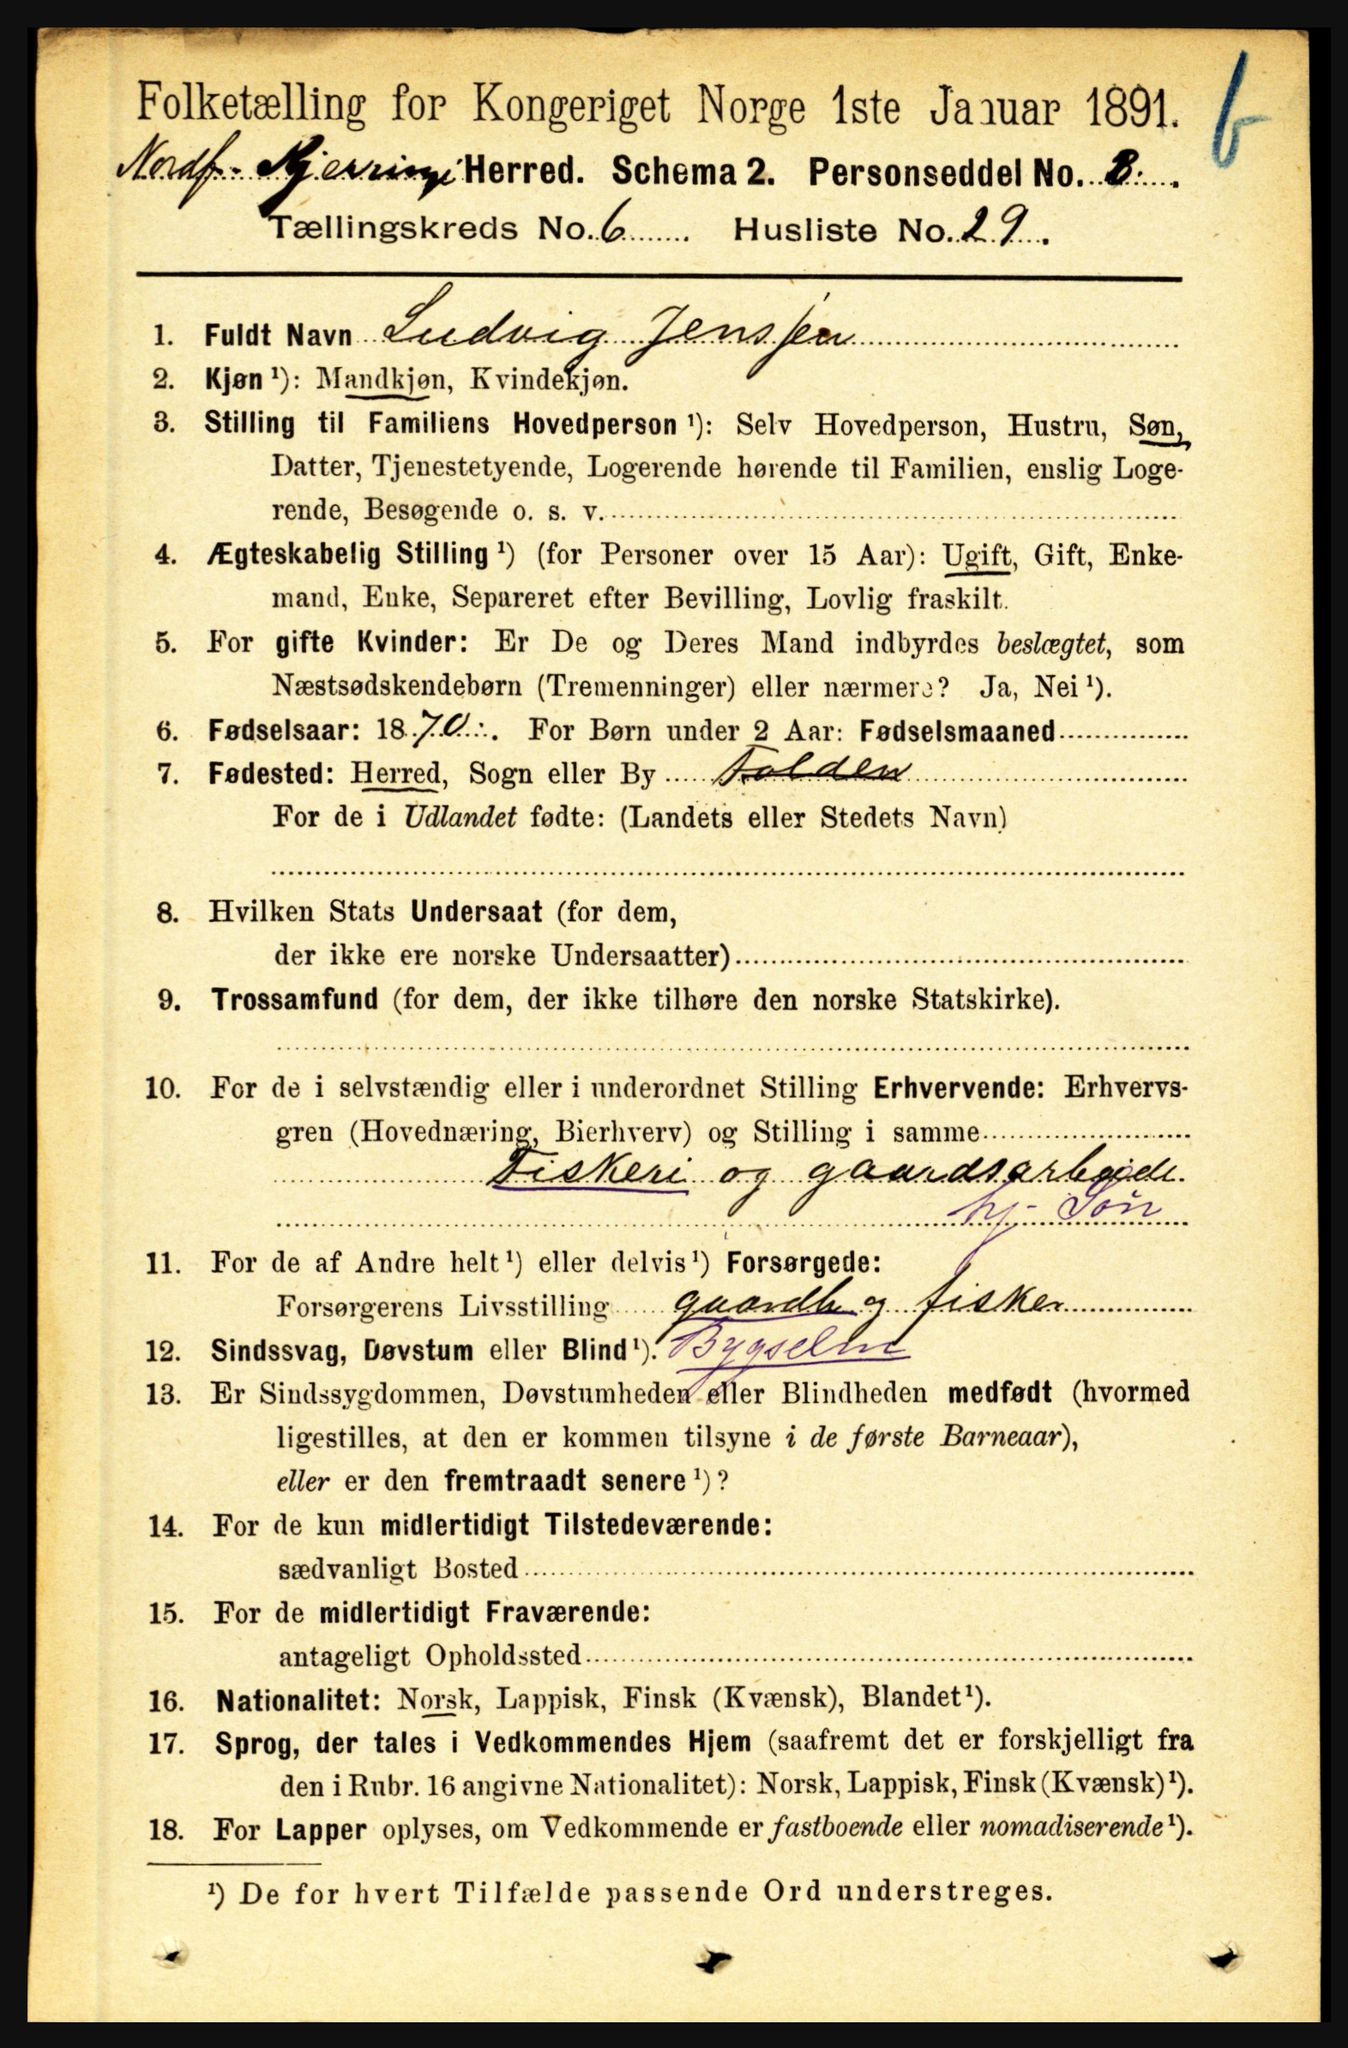 6
Folketælling for Kongeriget Norge 1ste Januar 1891.
Nordf- Kjerringø Herred. Schema 2. Personseddel No. 3.
Tællingskreds No. 6 Husliste No. 29.
1. Fuldt Navn Ludvig Jenssen
2. Kjøn¹): Mandkjøn, Kvindekjøn.
3. Stilling til Familiens Hovedperson¹): Selv Hovedperson, Hustru, Søn,
Datter, Tjenestetyende, Logerende hørende til Familien, enslig Loge-
rende, Besøgende o. s. v.
4. Ægteskabelig Stilling¹) (for Personer over 15 Aar): Ugift, Gift, Enke-
mand, Enke, Separeret efter Bevilling, Lovlig fraskilt.
5. For gifte Kvinder: Er De og Deres Mand indbyrdes beslægtet, som
Næstsødskendebørn (Tremenninger) eller nærmere? Ja, Nei¹).
6. Fødselsaar: 1870. For Børn under 2 Aar: Fødselsmaaned
7. Fødested: Herred, Sogn eller By Folden
For de i Udlandet fødte: (Landets eller Stedets Navn)
8. Hvilken Stats Undersaat (for dem,
der ikke ere norske Undersaatter)
9. Trossamfund (for dem, der ikke tilhøre den norske Statskirke).
10. For de i selvstændig eller i underordnet Stilling Erhvervende: Erhvervs-
gren (Hovednæring, Bierhverv) og Stilling i samme
Fiskeri og gaardsarbeide
hj- Søn
11. For de af Andre helt¹) eller delvis¹) Forsørgede:
Forsørgerens Livsstilling gaardb og fisker
12. Sindssvag, Døvstum eller Blind¹). Bygselm
13. Er Sindssygdommen, Døvstumheden eller Blindheden medfødt (hvormed
ligestilles, at den er kommen tilsyne i de første Barneaar),
eller er den fremtraadt senere¹)?
14. For de kun midlertidigt Tilstedeværende:
sædvanligt Bosted
15. For de midlertidigt Fraværende:
antageligt Opholdssted
16. Nationalitet: Norsk, Lappisk, Finsk (Kvænsk), Blandet¹).
17. Sprog, der tales i Vedkommendes Hjem (saafremt det er forskjelligt fra
den i Rubr. 16 angivne Nationalitet): Norsk, Lappisk, Finsk (Kvænsk)¹).
18. For Lapper oplyses, om Vedkommende er fastboende eller nomadiserende¹).
¹) De for hvert Tilfælde passende Ord understreges.